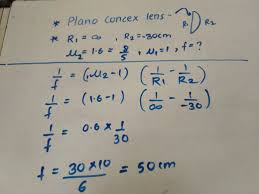 * Plano concex lens- R₁ R₂
* R₁ = ∞ , R₂ = -30cm
μ₂ = 1.6 = 8/5 , μ₁ = 1 , f = ?
1/f = (₁μ₂ - 1) (1/R₁ - 1/R₂)
1/f = (1.6 - 1) (1/∞ - 1/-30)
1/f = 0.6 × 1/30
f = 30 × 10/6 = 50 cm